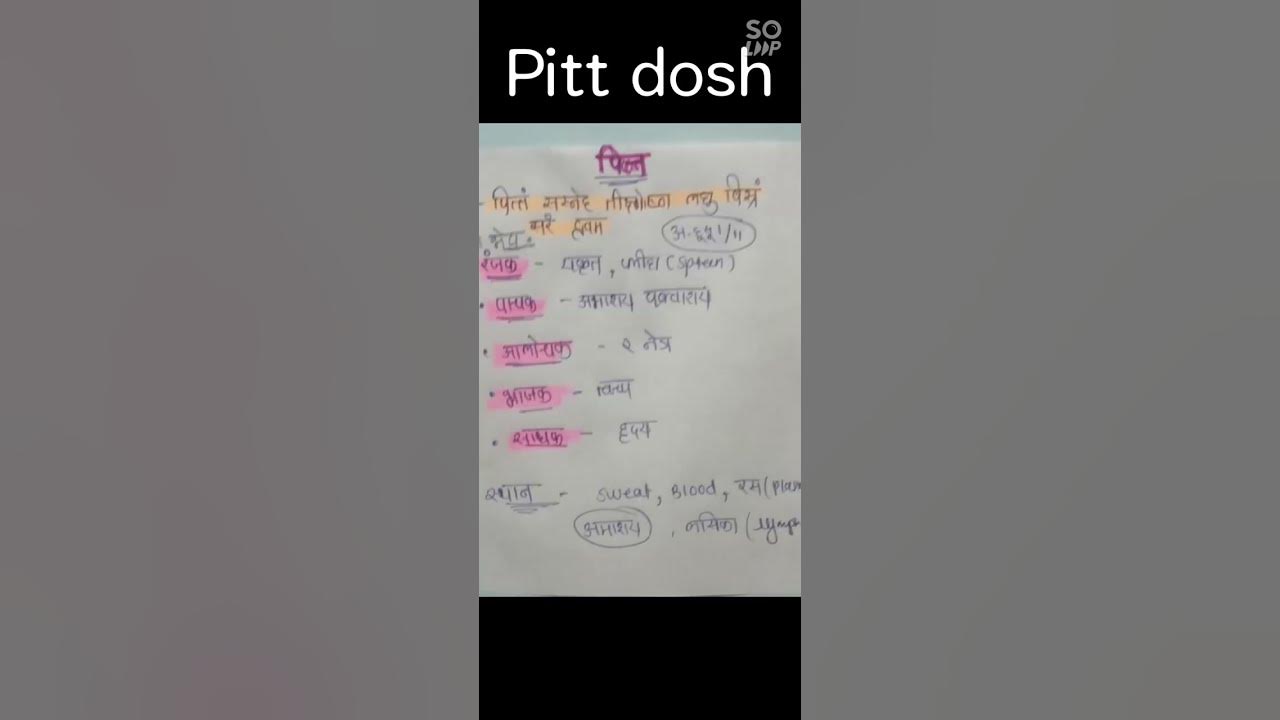 SO
LOOP
Pitt dosh
पित्त
- पित्तं सस्नेह तीक्ष्णोष्ण लघु विस्रं
सरं द्रवम
अ.हृ.सू.1/11
भेद:
रंजक - यकृत, प्लीहा (spleen)
• पाचक - आमाशय पक्वाशय
• आलोचक - २ नेत्र
• भ्राजक - त्वचा
• साधक - हृदय
स्थान - sweat, Blood, रस (plas
आमाशय, लसिका (lymph